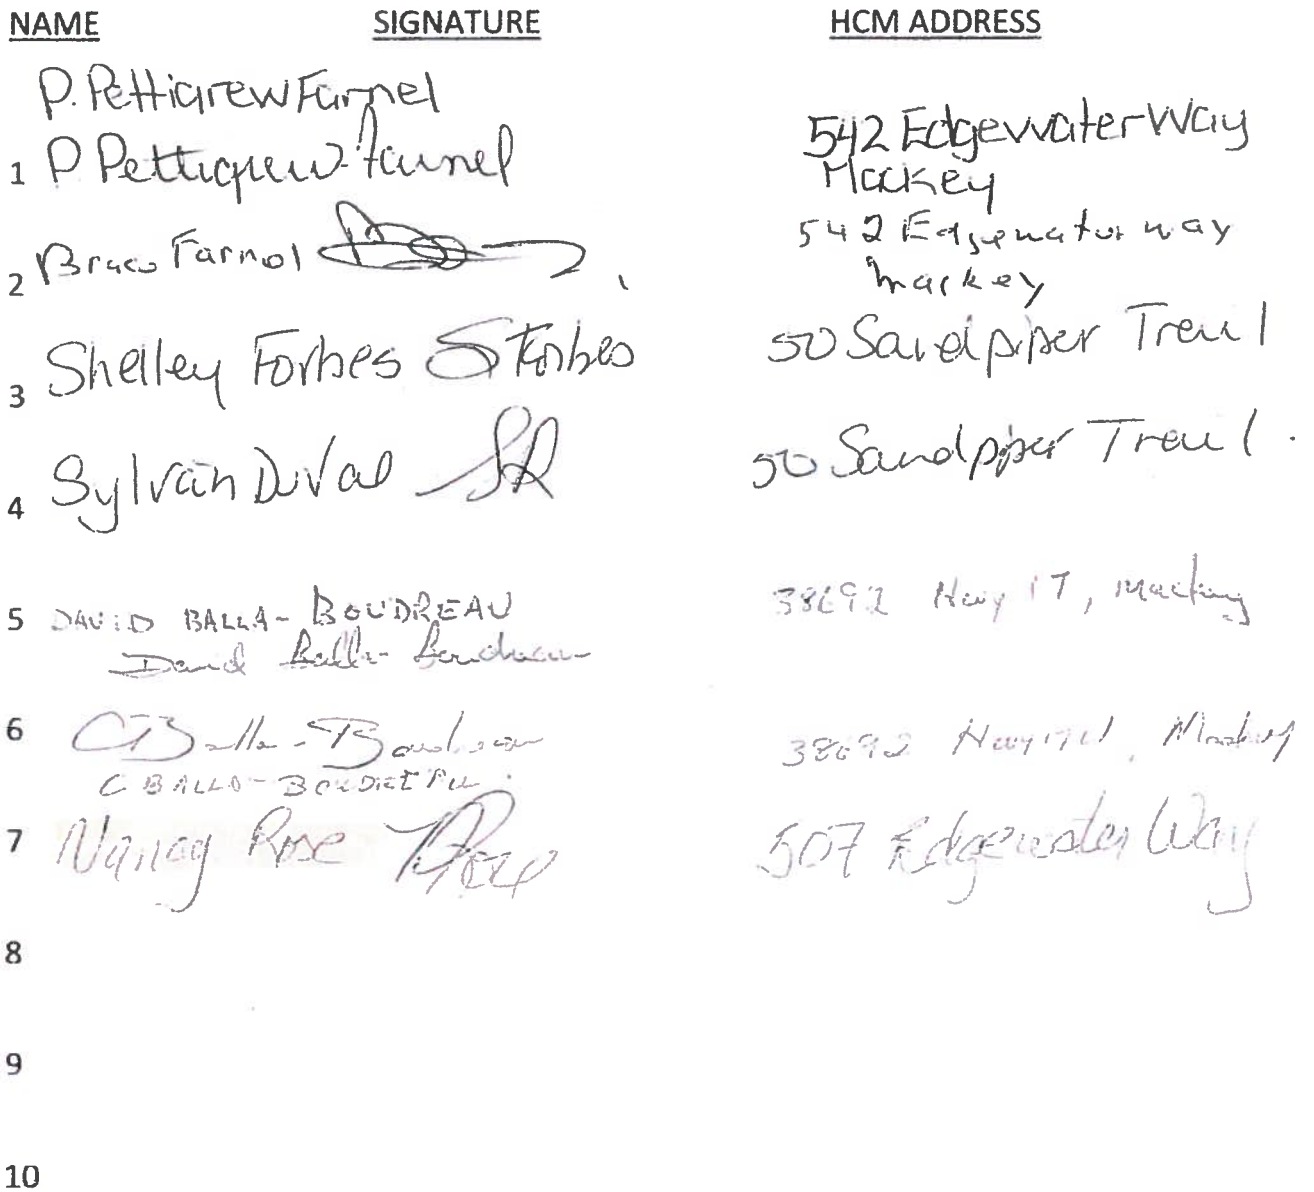 NAME SIGNATURE HCM ADDRESS
P. Pettigrew Farnel
1 P Pettigrew-Farnel 542 Edgewater Way
Mackey
2 Bruce Farnol 542 Edgewater way
mackey
3 Shelley Forbes S Forbes 50 Sandpiper Trail
4 Sylvain Duval 50 Sandpiper Trail
5 DAVID BALLA-BOUDREAU 38692 Hwy 17, Mackey
David Balla-Boudreau
6 C Balla-Boudreau 38692 Hwy 17, Mackey
C BALLA-BOUDREAU
7 Nancy Rose N Rose 507 Edgewater Way
8
9
10